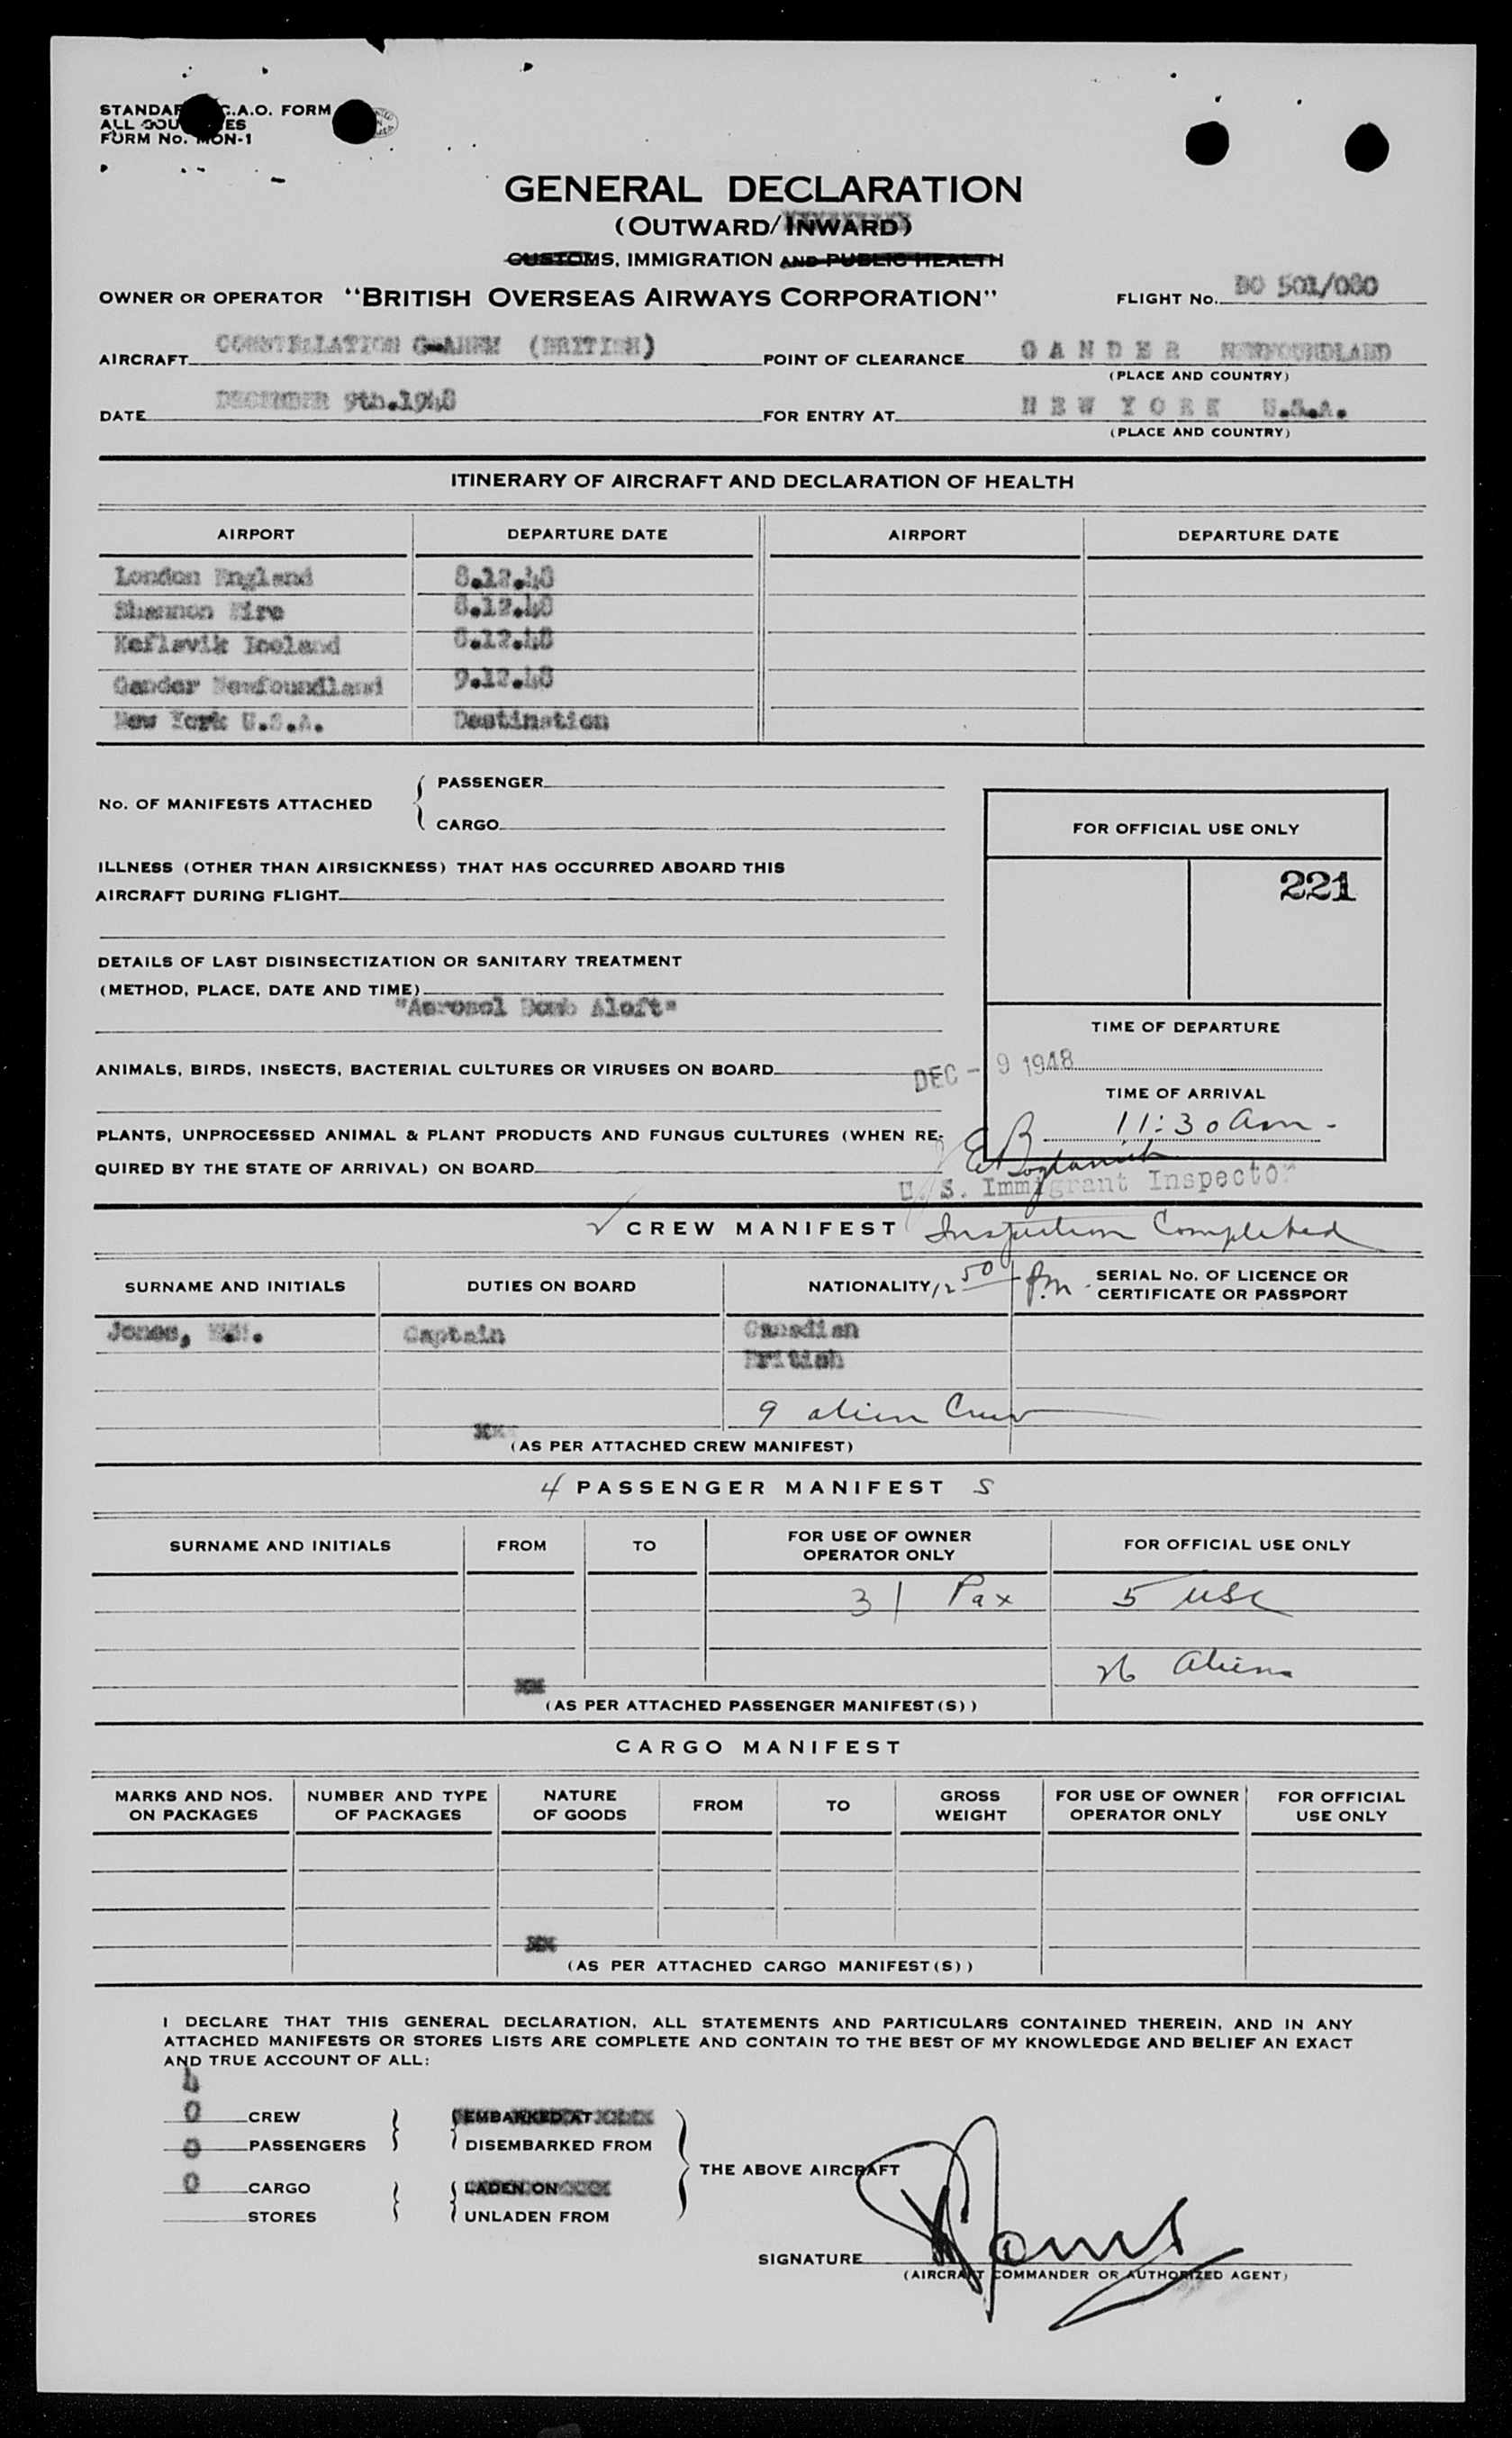 C.A.O. FORM
ALL
FORM No. MON-1
GENERAL DECLARATION
(OUTWARD/INWARD)
CUSTOMS, IMMIGRATION AND PUBLIC HEALTH
OWNER OR OPERATOR "BRITISH OVERSEAS AIRWAYS CORPORATION" FLIGHT No. BO 501/080
AIRCRAFT CONSTELLATION (BRITISH) POINT OF CLEARANCE GANDER NEWFOUNDLAND
(PLACE AND COUNTRY)
DATE DECEMBER 9th.1948 FOR ENTRY AT NEW YORK U.S.A.
(PLACE AND COUNTRY)
ITINERARY OF AIRCRAFT AND DECLARATION OF HEALTH
AIRPORT DEPARTURE DATE AIRPORT DEPARTURE DATE
London England 8.12.48
Shannon Eire 8.12.48
Keflavik Iceland 8.12.48
Gander Newfoundland 9.12.48
New York U.S.A. Destination
No. OF MANIFESTS ATTACHED
PASSENGER
CARGO
FOR OFFICIAL USE ONLY
221
ILLNESS (OTHER THAN AIRSICKNESS) THAT HAS OCCURRED ABOARD THIS
AIRCRAFT DURING FLIGHT
DETAILS OF LAST DISINSECTIZATION OR SANITARY TREATMENT
(METHOD, PLACE, DATE AND TIME)
"Aerosol Bomb Aloft"
TIME OF DEPARTURE
ANIMALS, BIRDS, INSECTS, BACTERIAL CULTURES OR VIRUSES ON BOARD
DEC - 9 1948
TIME OF ARRIVAL
11:30 am -
PLANTS, UNPROCESSED ANIMAL & PLANT PRODUCTS AND FUNGUS CULTURES (WHEN RE-
QUIRED BY THE STATE OF ARRIVAL) ON BOARD
U. S. Immigrant Inspector
CREW MANIFEST Inspection Completed
12 50 P.m.
SURNAME AND INITIALS DUTIES ON BOARD NATIONALITY SERIAL No. OF LICENCE OR
CERTIFICATE OR PASSPORT
Jones, Captain Canadian
British
9 alien Crew
(AS PER ATTACHED CREW MANIFEST)
4 PASSENGER MANIFEST S
SURNAME AND INITIALS FROM TO FOR USE OF OWNER
OPERATOR ONLY FOR OFFICIAL USE ONLY
31 Pax 5 USC
26 Aliens
(AS PER ATTACHED PASSENGER MANIFEST(S))
CARGO MANIFEST
MARKS AND NOS.
ON PACKAGES NUMBER AND TYPE
OF PACKAGES NATURE
OF GOODS FROM TO GROSS
WEIGHT FOR USE OF OWNER
OPERATOR ONLY FOR OFFICIAL
USE ONLY
(AS PER ATTACHED CARGO MANIFEST(S))
I DECLARE THAT THIS GENERAL DECLARATION, ALL STATEMENTS AND PARTICULARS CONTAINED THEREIN, AND IN ANY
ATTACHED MANIFESTS OR STORES LISTS ARE COMPLETE AND CONTAIN TO THE BEST OF MY KNOWLEDGE AND BELIEF AN EXACT
AND TRUE ACCOUNT OF ALL:
4
0 CREW EMBARKED AT
0 PASSENGERS DISEMBARKED FROM
THE ABOVE AIRCRAFT
0 CARGO LADEN ON
STORES UNLADEN FROM
SIGNATURE
(AIRCRAFT COMMANDER OR AUTHORIZED AGENT)